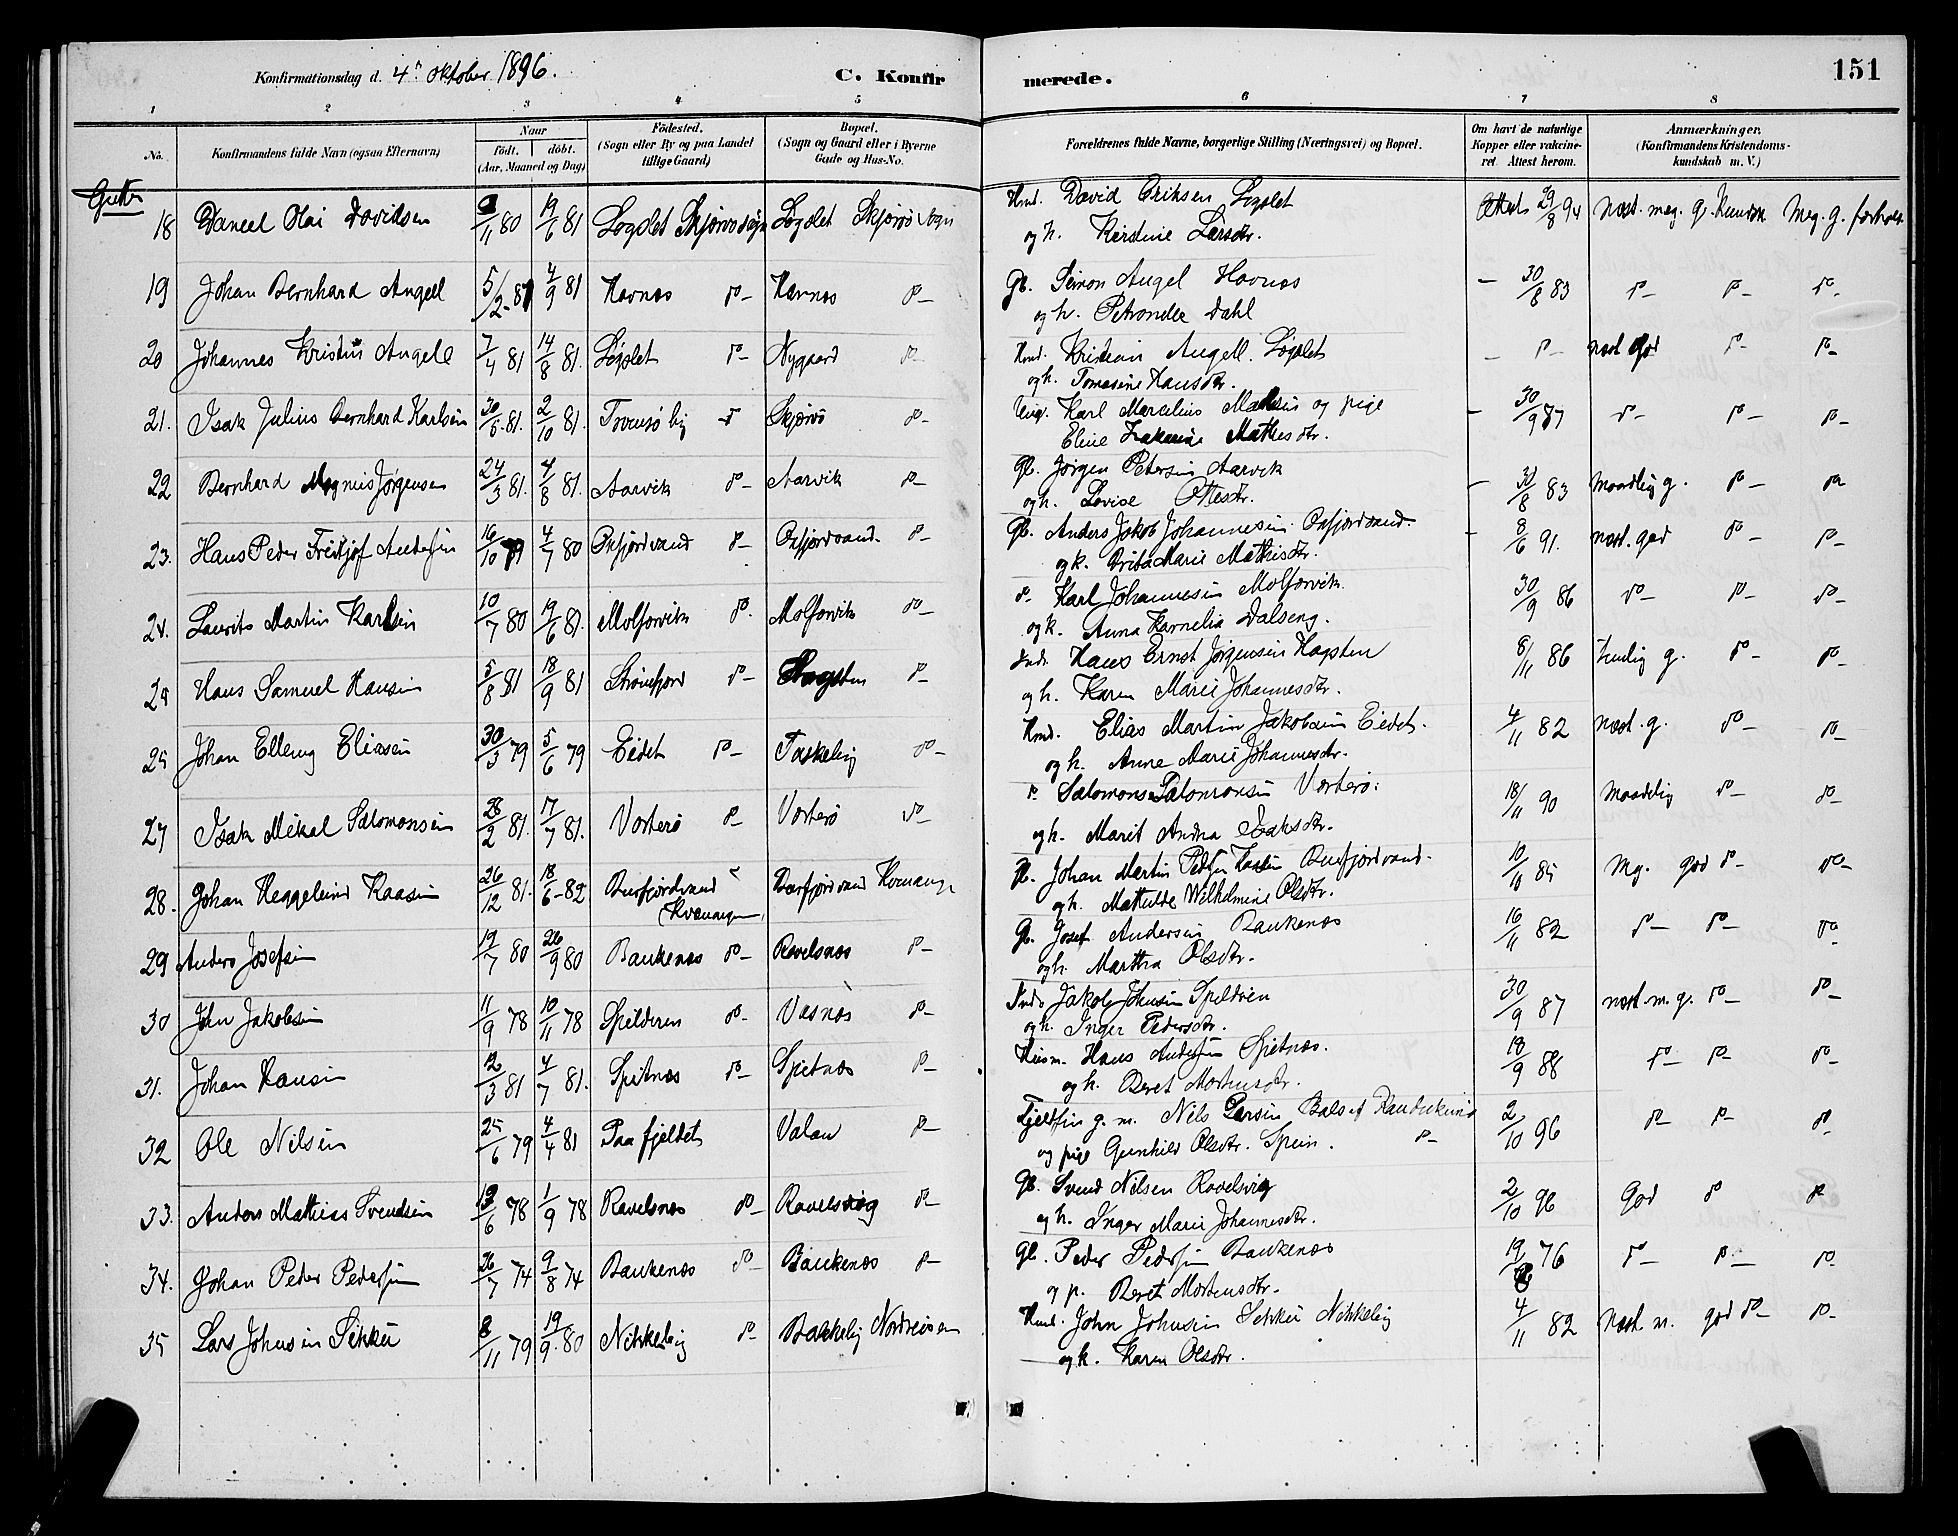 Konfirmationsdag d. 4de oktober 1896.
C. Konfirmerede.
151
1 2 3 4 5 6 7 8
No.
Konfirmandens fulde Navn (ogsaa Efternavn)
Naar
födt. döbt.
(Aar, Maaned og Dag)
Födested.
(Sogn eller By og paa Landet
tillige Gaard)
Bopæl.
(Sogn og Gaard eller i Byerne
Gade og Hus-No.
Forældrenes fulde Navne, borgerlige Stilling (Næringsvei) og Bopæl.
Om havt de naturlige
Kopper eller vakcine-
ret. Attest herom.
Anmærkninger.
(Konfirmandens Kristendoms-
kundskab m. V.)
Gutter
18 Daniel Olai Davidsen /11 80 19/6 81 Løgslet Skjervø sogn Løgslet Skjervø sogn Kmd. David Eriksen Løgslet Attest 29/8 94 Næst. meg. g. kundsk. Meg. g. forhold
og h. Kirstine Larsdtr.
19 Johan Bernhard Angell 5/2 81 4/9 81 Havnæs do- Havnæs do- Gb. Simon Angel Havnæs - 30/8 83 do- do- do-
og h. Petronelle Dahl
20 Johannes Kristian Angell 7/4 81 14/8 81. Løgslet do- Nygaard do- Kmd. Kristian Angell. Løgslet - do- næst god do- do-
og h. Tomasine Hansdtr.
21. Isak Julius Bernhard Karlsen 30/6 81. 2/10 81. Tromsø by Skjervø do- Ung. Karl Marcelius Madsen og pige - 30/9 87 do- do- do-
Eline Mathisdtr.
22 Bernhard Magnus Jørgensen 24/3 81. 4/8 81. Aarvik do- Aarvik do- Gb. Jørgen Petersen Aarvik - 30/8 83 Maadelig g. do- do-
og h. Lovise Ottesdtr.
23. Hans Peder Fridtjof Andersen 16/10 79 4/7 80 Oxfjordvand do- Oxfjordvand do- Gb. Anders Jakob Johannesen Oxfjordvand - 8/6 91. næst. god do- do-
og k. Marie Mathisdtr.
24. Laurits Martin Karlsen 10/7 80 19/6 81. Molforvik do. Molforvik do- do- Karl Johannesen Molforvik 30/9 86 do- do- do-
og k. Anna Kornelia Dalseng.
25 Hans Samuel Hansen 5/8 81 18/9 81 Straumfjord do- Hagsten do- Indr. Hans Ernst Jørgensen Hagsten 8/11 86 Temlig g. do- do-
og h. Karen Marie Johannesdtr.
25 Johan Elleng Eliasen 30/3 79 5/6 79 Eidet do- Taskeby do- Kmd. Elias Martin Jakobsen Eidet. 4/11 82 næst. g. do- do-
og h. Anne Marie Johannesdtr.
27 Isak Mikal Salomonsen 28/2 81. 17/7 81. Vorterø do- Vorterø do- do- Salomon Salomonsen Vorterø. 18/11 90 Maadelig do- do-
og h. Marit Andrea Isaksdtr.
28. Johan Heggelund Kaasen 26/12 81. 18/6-82 Burfjordvand Burfjordvand Kvænangen Gb. Johan Martin Petter Kaasen Burfjordvand. 10/10 85 Mg. god do- do-
(Kvænangen) og h. Mathilde Wilhelmine Olsdtr.
29 Anders Josefsen 19/7 80 26/9 80 Baukenæs do- Ravelsnæs do- Gb. Josef Andersen Baukenæs 16/11 82 do- do- do-
og h. Martha Olsdtr.
30 John Jakobsen 11/9 78 10/11 78 Spilderen do- Vasnæs do- Inds Jakob Johnsen Spildren 30/9 87 næst. m. g. do- do-
og h. Inger Pedersdtr.
31. Johan Hansen 12/3 81 4/7 81. Spitnæs do- Spitnæs do- Husm. Hans Andersen Spitnæs. 18/9 88 do- do- do-
og h. Beret Mortensdtr.
32 Ole Nilsen 25/6 79 4/4 81 Paa fjeldet Valan do- Fjeldfin g. m. Nils Larsen Bals af Kautokeino 2/10 96 do- do- do-
og pige Gunhild Olsdtr. Spein. do-
33. Anders Mathias Svendsen 13/6 78 1/9 78 Ravelsnæs do- Ravelsvag do- Gb. Svend Nilsen Ravelsvig 2/10 96 God do do
og h. Inger Marie Johannesdtr.
34. Johan Peder Pedersen 26/7 74 9/8 74 Baukenæs do- Baukenæs do- Gb. Peder Pedersen Baukenæs 19/ 76 do- do- do-
og p. Beret Mortensdtr.
35 Lars Johnsen Sikku 8/11 79 19/9. 80 Nikkeby do- Bakkeby Nordreisen Kmd. John Johnsen Sikku Nikkeby 4/11 82 Næst. m. god do- do-
og k. Karen Olsdtr.